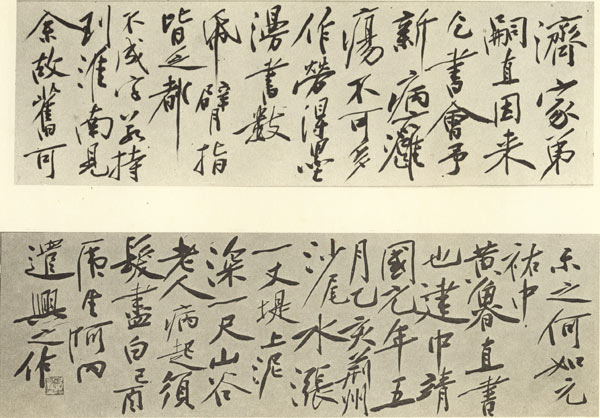 濟家弟
嗣直因来
乞書會予
新病癰
瘍不可多
作勞得墨
漫書數
紙臂指
皆乏都
不成字若持
到淮南見
余故舊可
示之何如元
祐中
黃魯直書
也建中靖
國元年五
月乙亥荊州
沙尾水漲
一丈堤上泥
深一尺山谷
老人病起須
髮盡白己酉
遣興之作